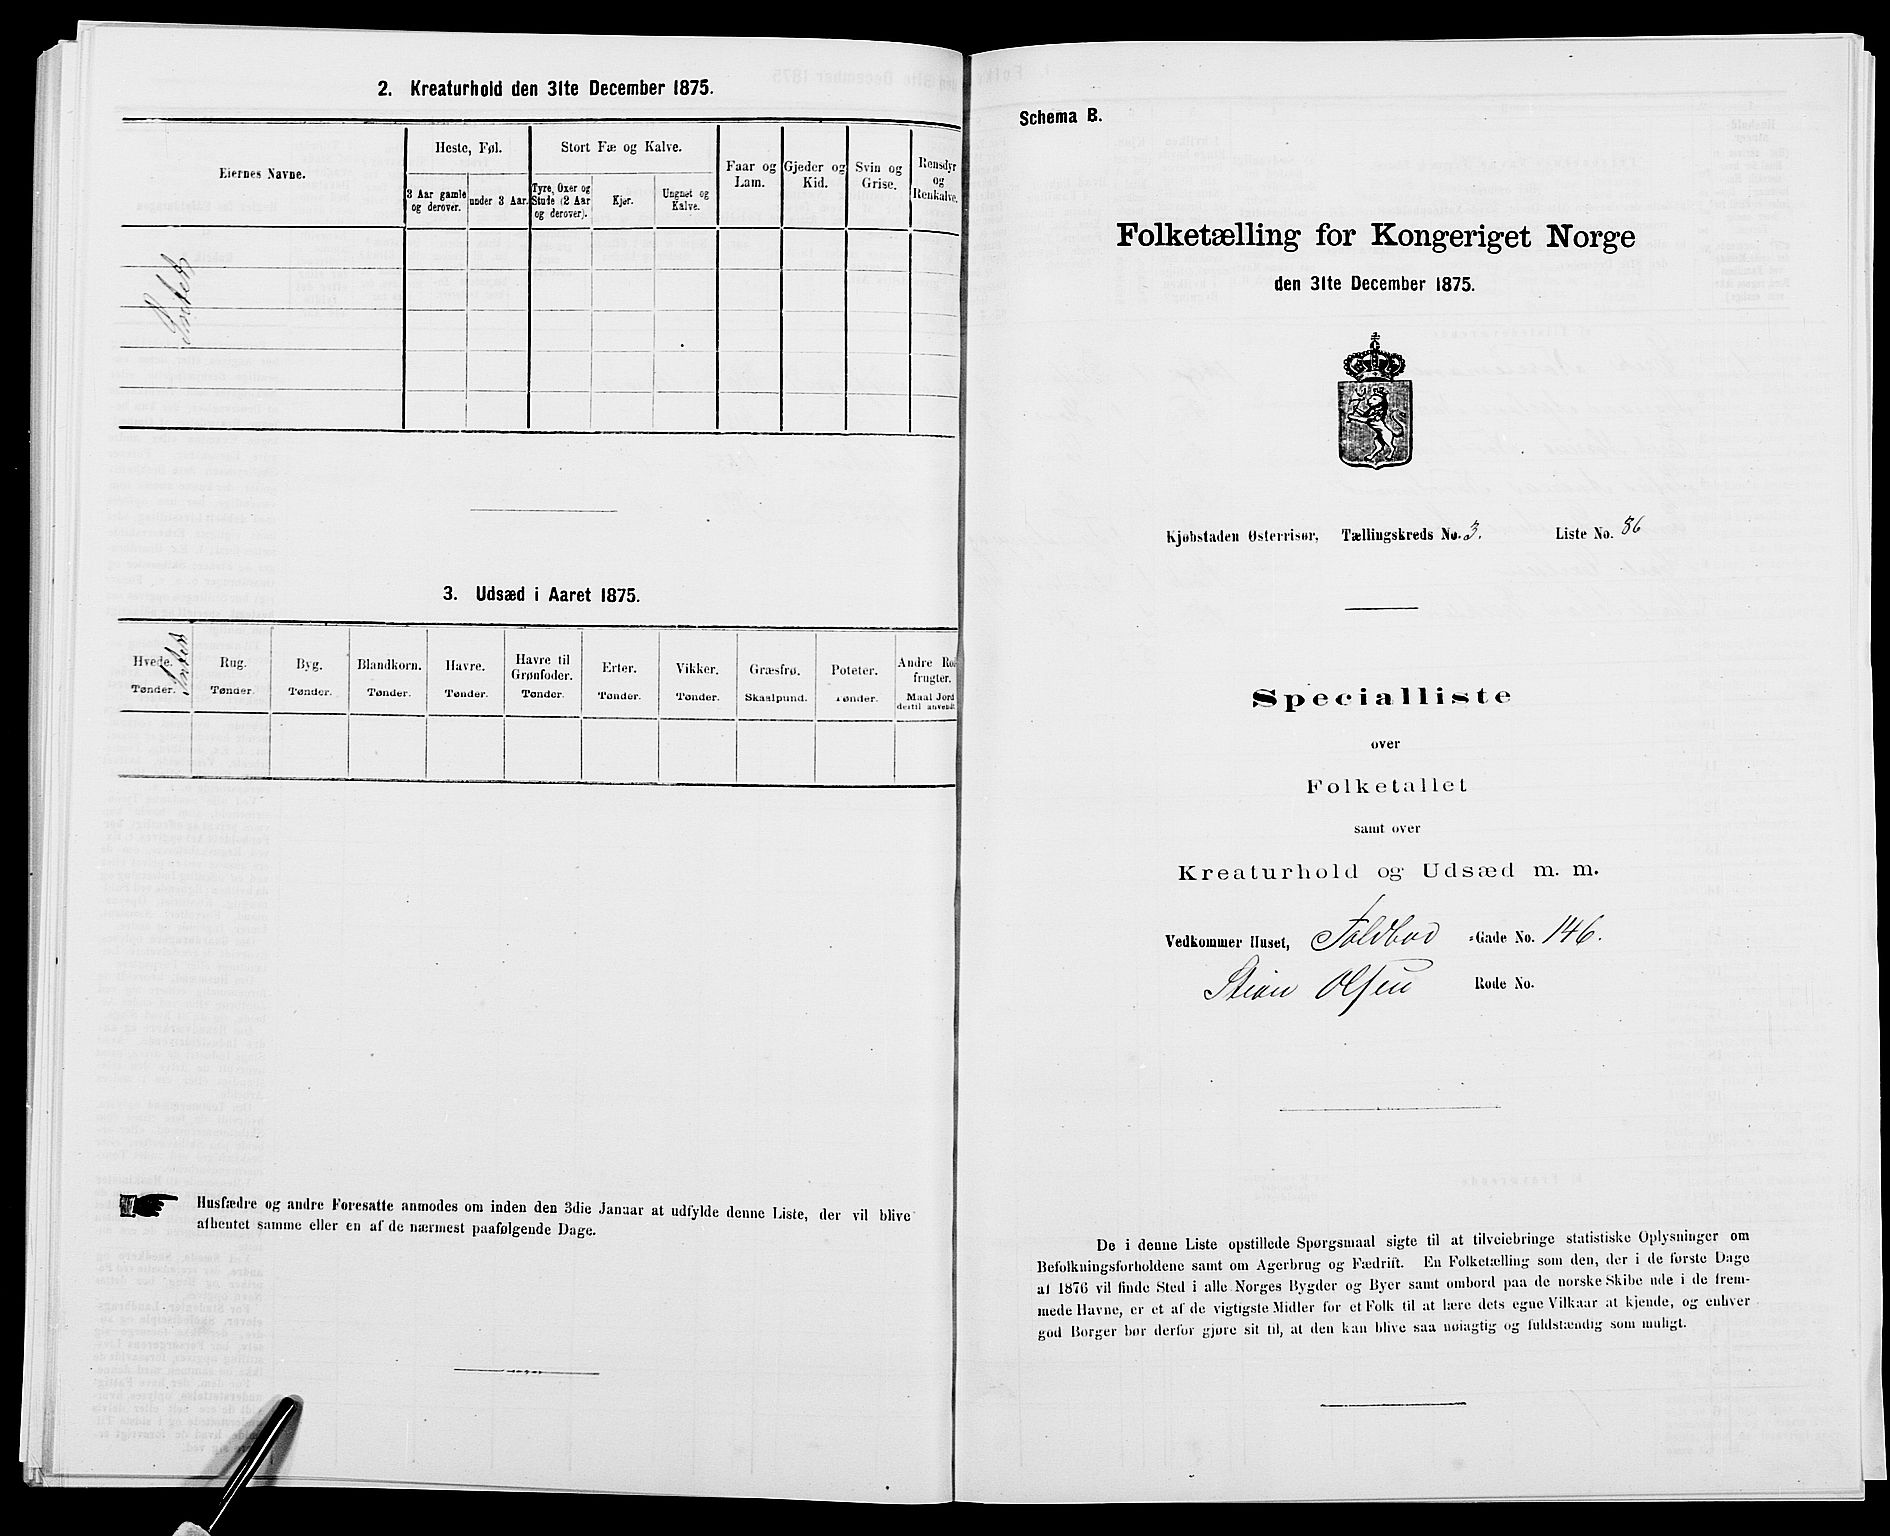 2. Kreaturhold den 31te December 1875.
Eiernes Navne.
Heste, Føl.
Stort Fæ og Kalve.
Faar og Lam.
Gjeder og Kid.
Svin og Grise.
Rensdyr og Renkalve.
3 Aar gamle og derover.
under 3 Aar.
Tyre, Oxer og Stude (2 Aar og derover).
Kjør.
Ungnet og Kalve.
Intet
3. Udsæd i Aaret 1875.
Hvede. Tønder.
Rug. Tønder.
Byg. Tønder.
Blandkorn. Tønder.
Havre. Tønder.
Havre til Grønfoder. Tønder.
Erter. Tønder.
Vikker. Tønder.
Græsfrø. Skaalpund.
Poteter. Tønder.
Andre Rodfrugter. Maal Jord dertil anvendt.
Intet
Husfædre og andre Foresatte anmodes om inden den 3die Januar at udfylde denne Liste, der vil blive
afhentet samme eller en af de nærmest paafølgende Dage.
Schema B.
Folketælling for Kongeriget Norge
den 31te December 1875.
Kjøbstaden Østerrisør, Tællingskreds No. 3. Liste No. 86
Specialliste
over
Folketallet
samt over
Kreaturhold og Udsæd m. m.
Vedkommer Huset, Toldbod -Gade No. 146.
Stian Olsen Rode No.
De i denne Liste opstillede Spørgsmaal sigte til at tilveiebringe statistiske Oplysninger om
Befolkningsforholdene samt om Agerbrug og Fædrift. En Folketælling som den, der i de første Dage
af 1876 vil finde Sted i alle Norges Bygder og Byer samt ombord paa de norske Skibe ude i de frem-
mede Havne, er et af de vigtigste Midler for et Folk til at lære dets egne Vilkaar at kjende, og enhver
god Borger bør derfor gjøre sit til, at den kan blive saa nøiagtig og fuldstændig som muligt.